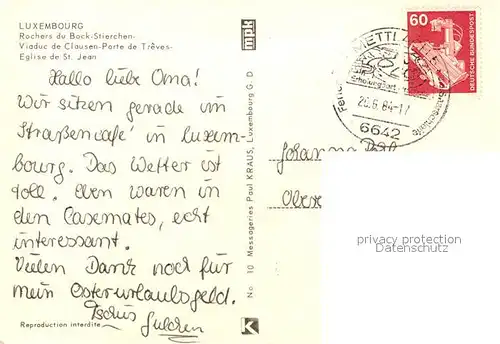 LUXEMBOURG
Rochers du Bock-Stierchen-
Viaduc de Clausen-Porte de Trèves-
Eglise de St. Jean
mpk
Hallo liebe Oma!
Wir sitzen gerade im
Straßencafe' in Luxem-
bourg. Das Wetter ist
toll. Eben waren in
den Casemates, echt
interessant.
Vielen Dank noch für
mein Osterurlaubsgeld.
Tschüs
Reproduction interdite
No. 10 Messageries Paul KRAUS, Luxembourg G. D.
K
60
DEUTSCHE BUNDESPOST
METTLACH
Erholungsort
6642
Johanna
privacy protection
www.AKPool.de